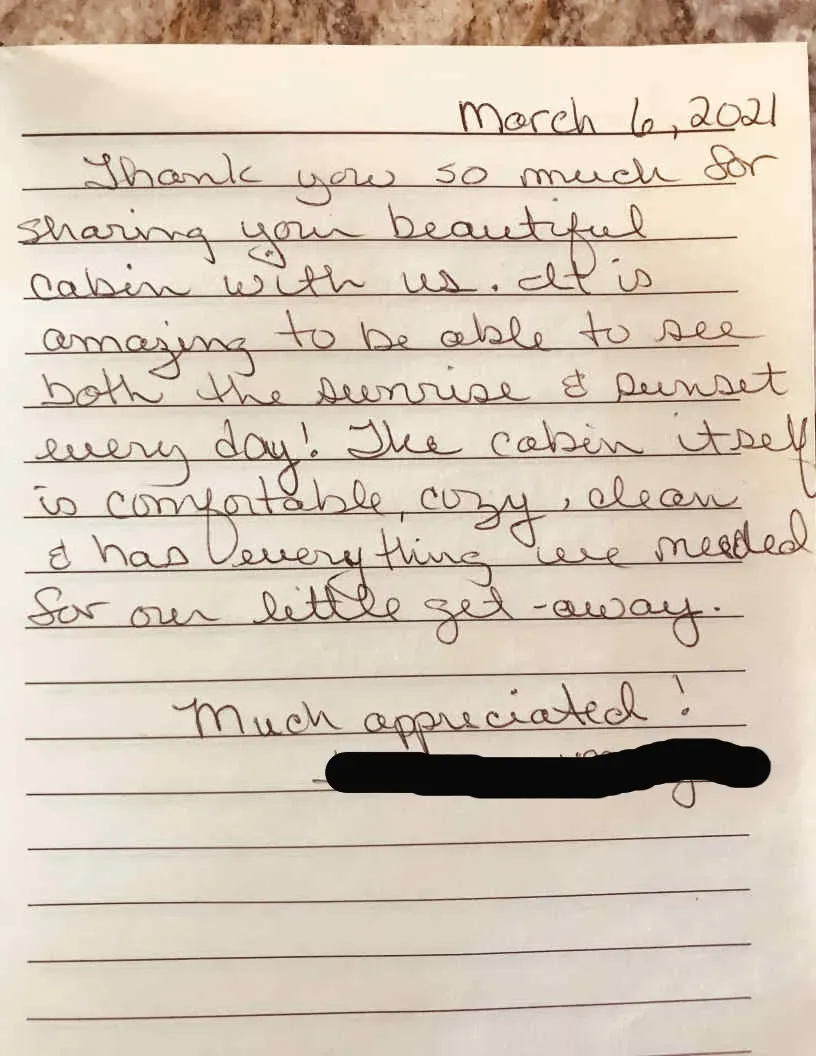 March 6, 2021
Thank you so much for
sharing your beautiful
cabin with us. It is
amazing to be able to see
both the sunrise & sunset
every day! The cabin itself
is comfortable, cozy, clean
& has everything we needed
for our little get-away.
Much appreciated!